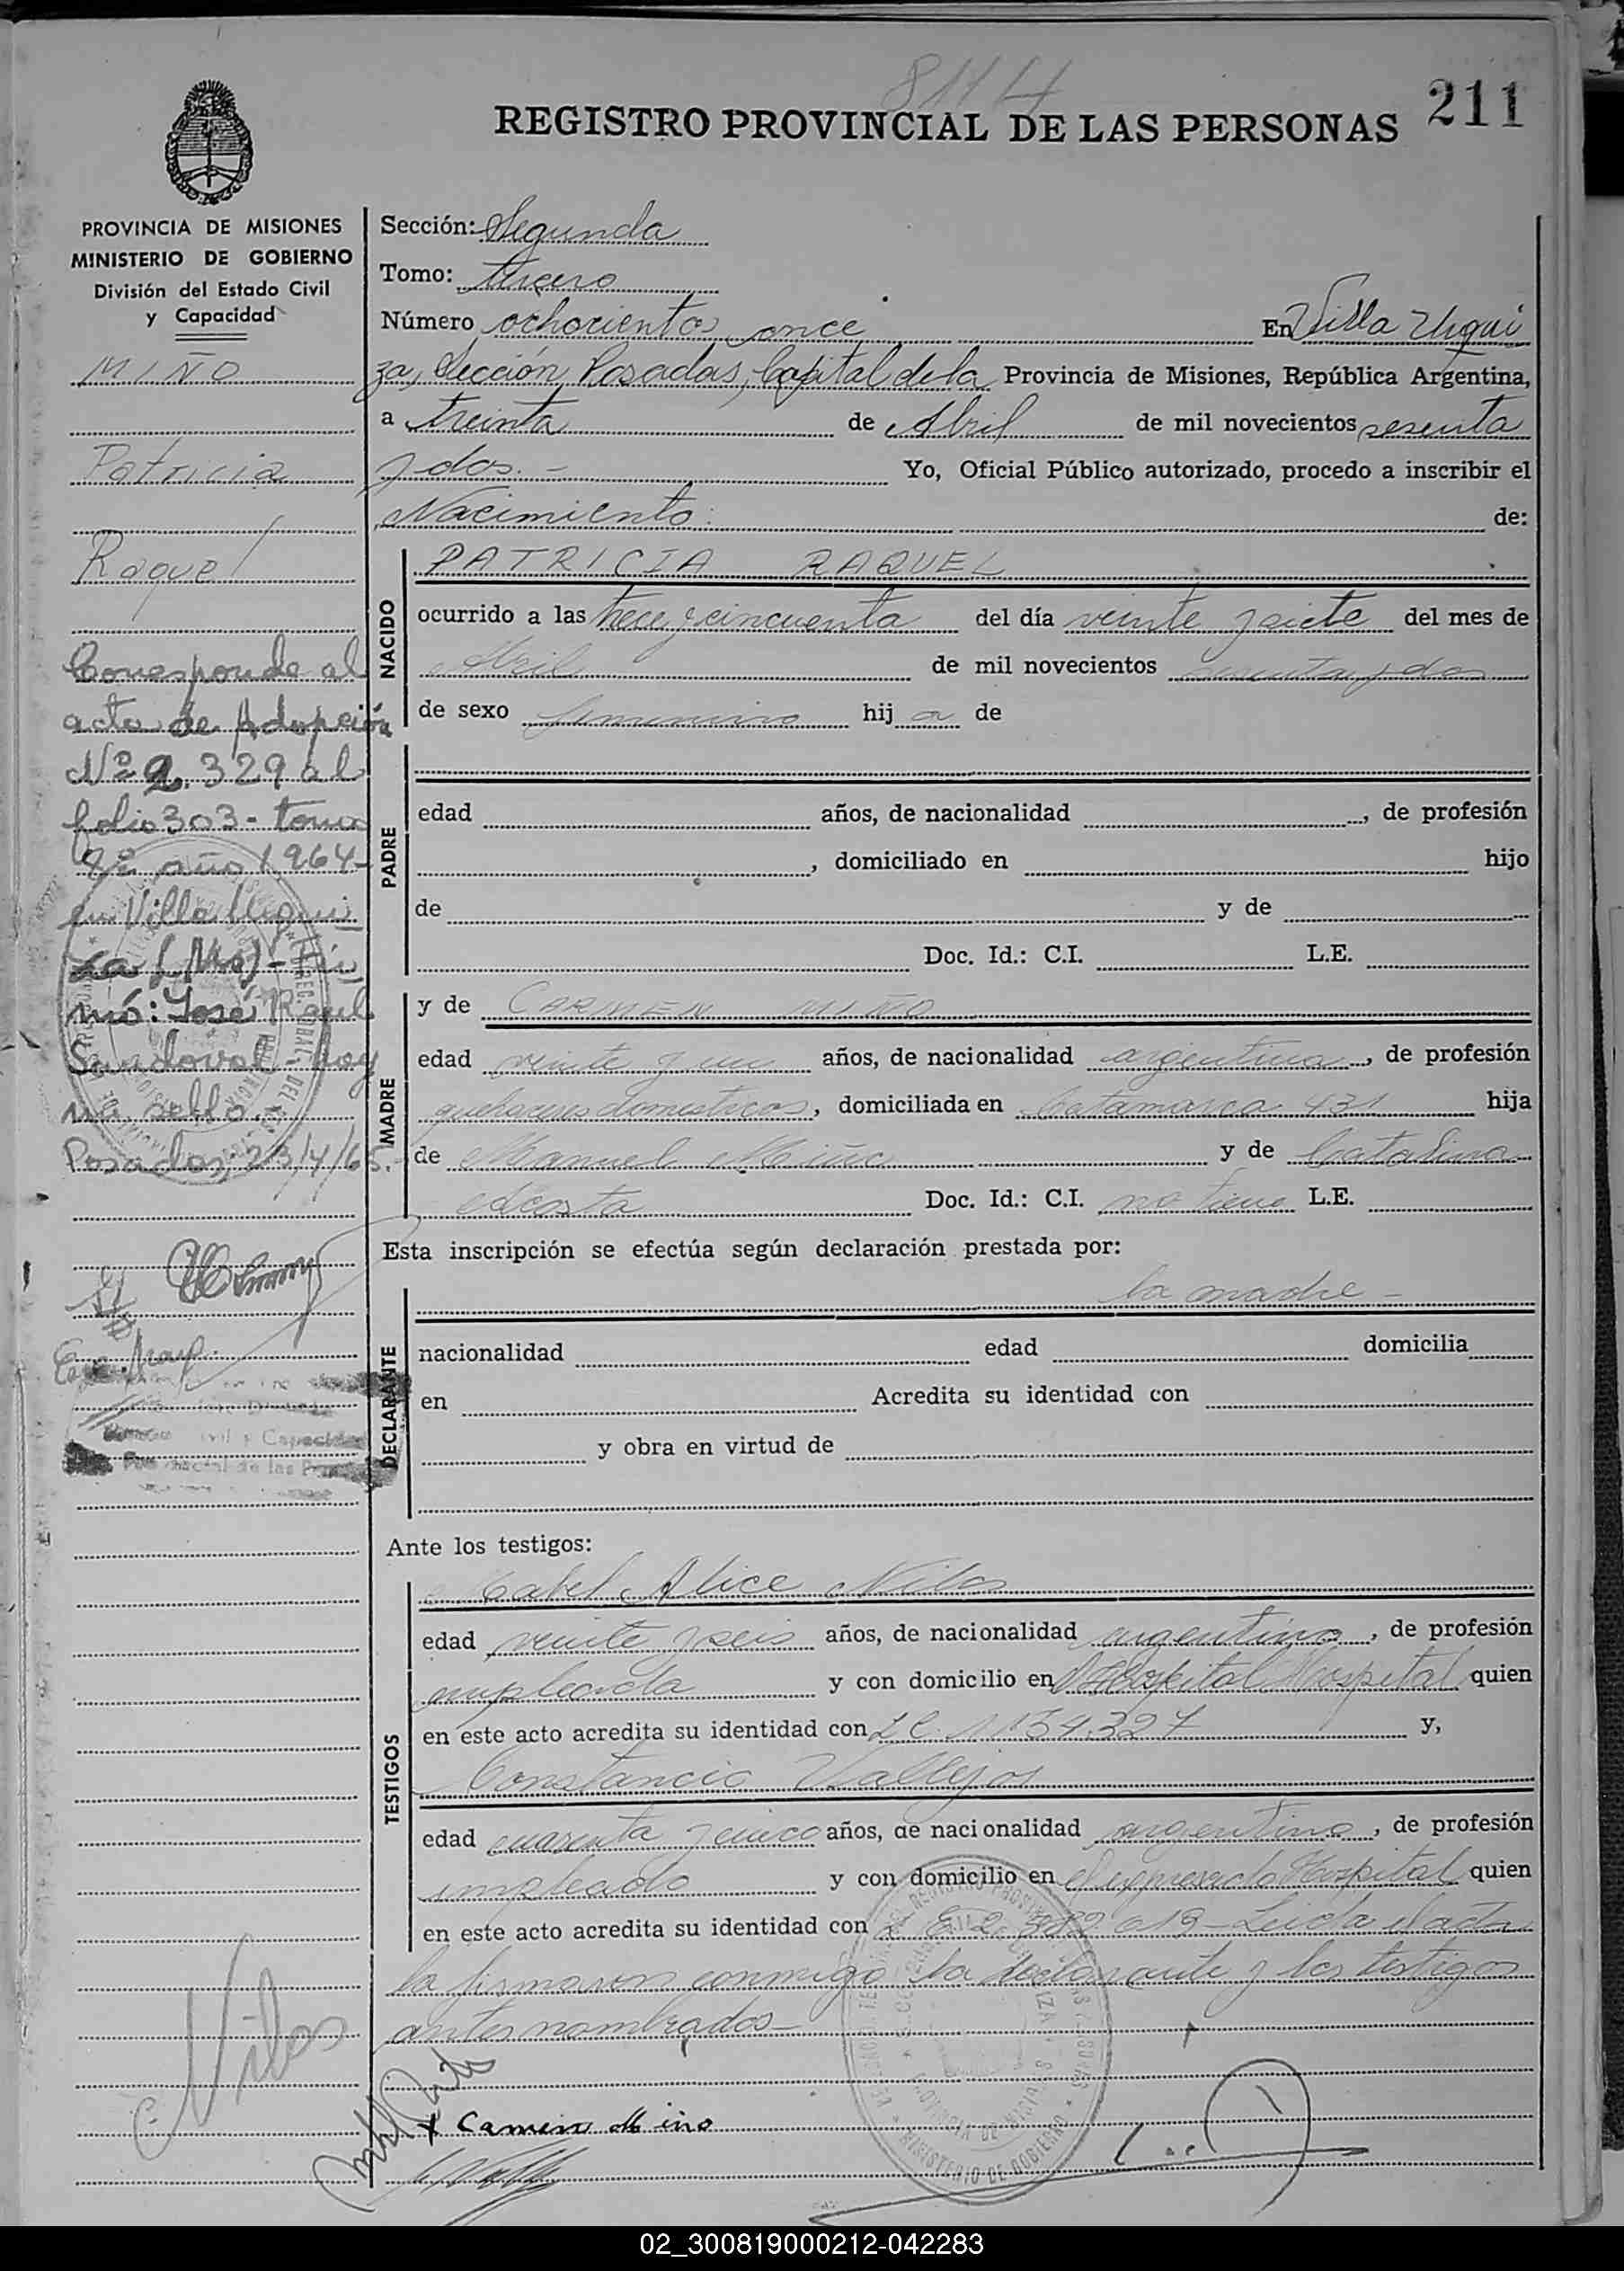 8114
REGISTRO PROVINCIAL DE LAS PERSONAS 211
PROVINCIA DE MISIONES
MINISTERIO DE GOBIERNO
División del Estado Civil
y Capacidad
MIÑO
Patricia
Raquel
Corresponde al
acta de Adopción
Nº 2.329 al
folio 303 - tomo
8º año 1964 -
en Villa Urqui
za (Mnes) - Fir
mó: José Raul
Sandoval hay
un sello.
Posadas, 23/4/65.-
Sección: Segunda
Tomo: tercero
Número ochocientos once En Villa Urqui
za, Sección Posadas, Capital de la Provincia de Misiones, República Argentina,
a treinta de Abril de mil novecientos sesenta
y dos.- Yo, Oficial Público autorizado, procedo a inscribir el
Nacimiento de:
NACIDO
PATRICIA RAQUEL
ocurrido a las trece y cincuenta del día veinte y siete del mes de
Abril de mil novecientos sesenta y dos
de sexo femenino hija de
PADRE
edad años, de nacionalidad , de profesión
, domiciliado en hijo
de y de
Doc. Id.: C.I. L.E.
MADRE
y de CARMEN MIÑO
edad veinte y un años, de nacionalidad argentina, de profesión
quehaceres domesticos, domiciliada en Catamarca 431 hija
de Manuel Miño y de Catalina
Acosta Doc. Id.: C.I. no tiene L.E.
Esta inscripción se efectúa según declaración prestada por:
DECLARANTE
la madre -
nacionalidad edad domicilia
en Acredita su identidad con
y obra en virtud de
Ante los testigos:
TESTIGOS
Mabel Alice Nilos
edad veinte y seis años, de nacionalidad argentina, de profesión
empleada y con domicilio en Hospital quien
en este acto acredita su identidad con L C 1.134.327 y,
Constancio Vallejos
edad cuarenta y cinco años, de nacionalidad argentino, de profesión
empleado y con domicilio en el expresado Hospital quien
en este acto acredita su identidad con L E 2.382.019 - Leida el acta
la firmaron conmigo la declarante y los testigos
antes nombrados -
Nilos
x Carmen Miño
02_300819000212-042283